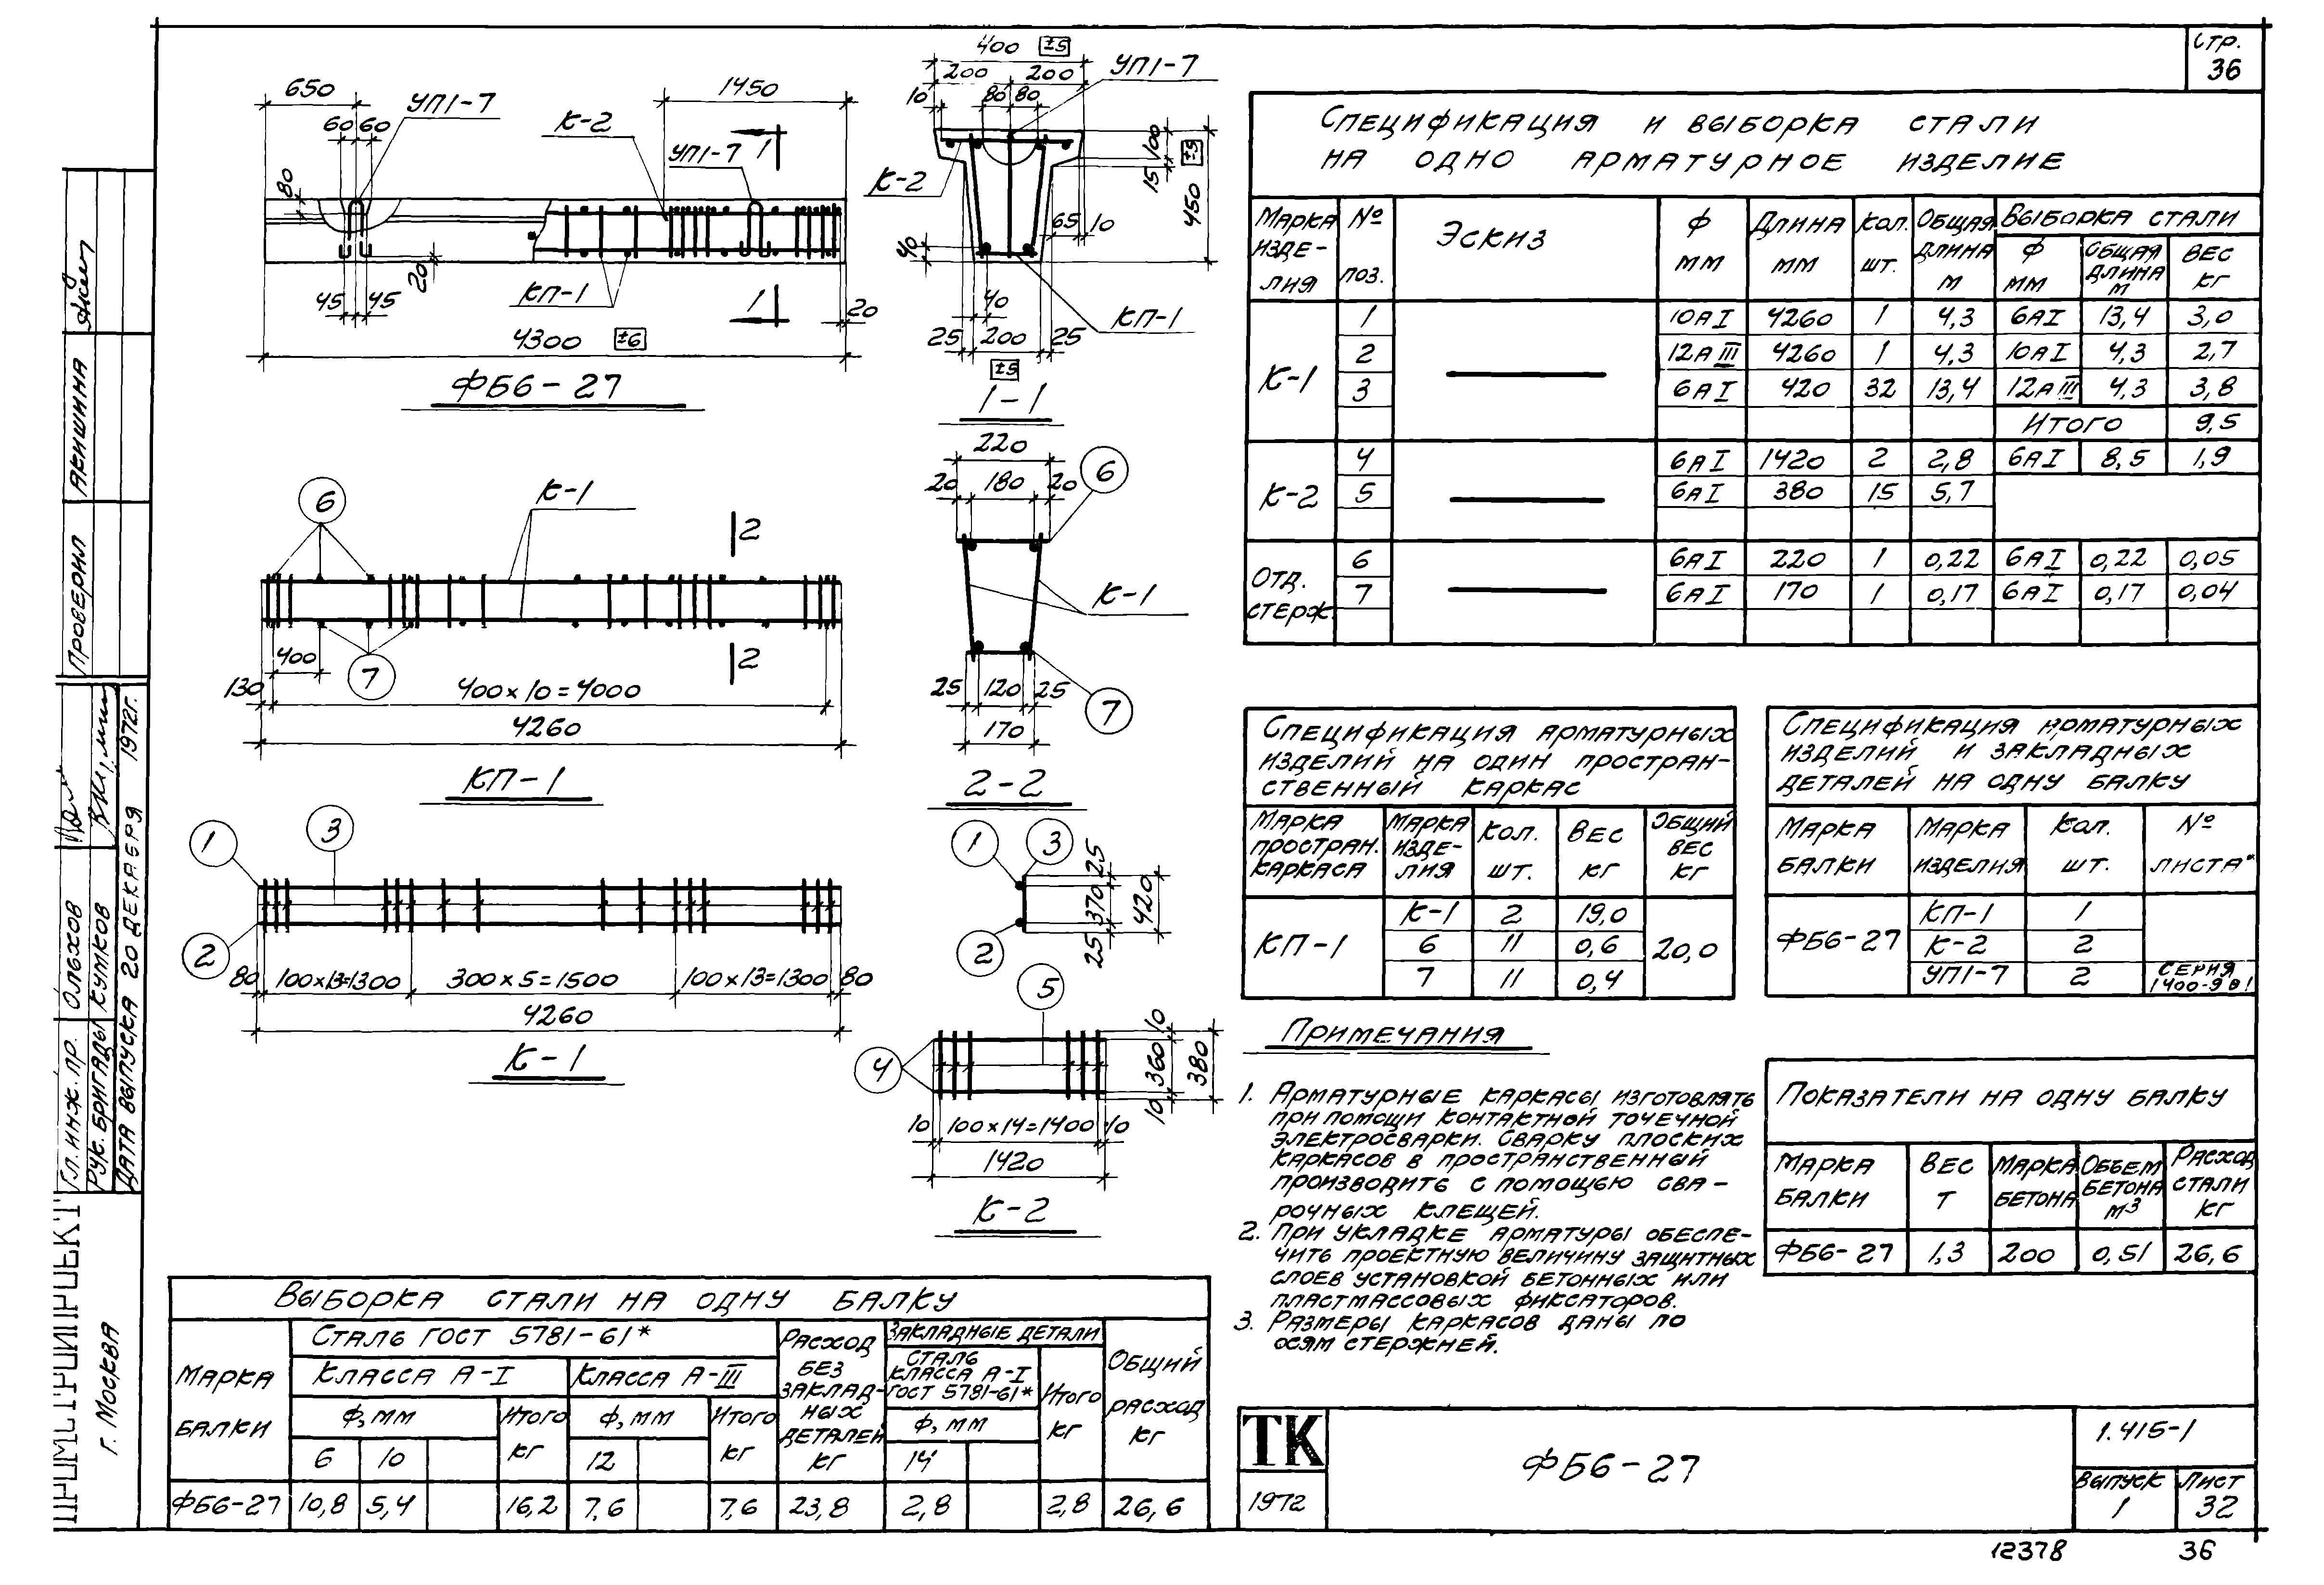 Стр.
36
650
УП1-7
60 60
К-2
1450
УП1-7
1
80
45 45
20
КП-1
1
20
4300 ±6
ФБ6-27
400 ±5
200 200
УП1-7
10 80 80
К-2
15 100
450 ±5
65 10
40
40
КП-1
25 200 25
±5
1-1
6
К-1
2
400
7
2
130 400×10=4000
4260
КП-1
220
20 180 20
6
К-1
25 120 25
7
170
2-2
1
3
2
80 100×13=1300 300×5=1500 100×13=1300 80
4260
К-1
1
3
2
25 370 25
420
5
4
10 360 10
380
10 100×14=1400 10
1420
К-2
Спецификация и выборка стали
на одно арматурное изделие
Марка изде-лия № поз. Эскиз Ф мм Длина мм Кол. шт. Общая длина м Выборка стали
Ф мм Общая длина м Вес кг
К-1 1 10АI 4260 1 4,3 6АI 13,4 3,0
2 12АIII 4260 1 4,3 10АI 4,3 2,7
3 6АI 420 32 13,4 12АIII 4,3 3,8
Итого 9,5
К-2 4 6АI 1420 2 2,8 6АI 8,5 1,9
5 6АI 380 15 5,7
Отд. стерж. 6 6АI 220 1 0,22 6АI 0,22 0,05
7 6АI 170 1 0,17 6АI 0,17 0,04
Спецификация арматурных
изделий на один простран-
ственный каркас
Марка простран. каркаса Марка изде-лия Кол. шт. Вес кг Общий вес кг
КП-1 К-1 2 19,0 20,0
6 11 0,6
7 11 0,4
Спецификация арматурных
изделий и закладных
деталей на одну балку
Марка балки Марка изделия Кол. шт. № листа
ФБ6-27 КП-1 1
К-2 2
УП1-7 2 Серия 1400-9 в1
Примечания
1. Арматурные каркасы изготовлять
при помощи контактной точечной
электросварки. Сварку плоских
каркасов в пространственный
производить с помощью сва-
рочных клещей.
2. При укладке арматуры обеспе-
чить проектную величину защитных
слоев установкой бетонных или
пластмассовых фиксаторов.
3. Размеры каркасов даны по
осям стержней.
Показатели на одну балку
Марка балки Вес т Марка бетона Объем бетона м3 Расход стали кг
ФБ6-27 1,3 200 0,51 26,6
Выборка стали на одну балку
Марка балки Сталь ГОСТ 5781-61* Расход без заклад-ных деталей кг Закладные детали Общий расход кг
Класса А-I Класса А-III Сталь класса А-I ГОСТ 5781-61* Итого кг
Ф, мм Итого кг Ф, мм Итого кг Ф, мм
6 10 12 14
ФБ6-27 10,8 5,4 16,2 7,6 7,6 23,8 2,8 2,8 26,6
ТК
1972
ФБ6-27
1.415-1
Выпуск 1
Лист 32
12378 36
Проверил Акишина
Гл. инж. пр. Ольхов
Рук. бригады Кумков
Дата выпуска 20 декабря 1972г.
г. Москва